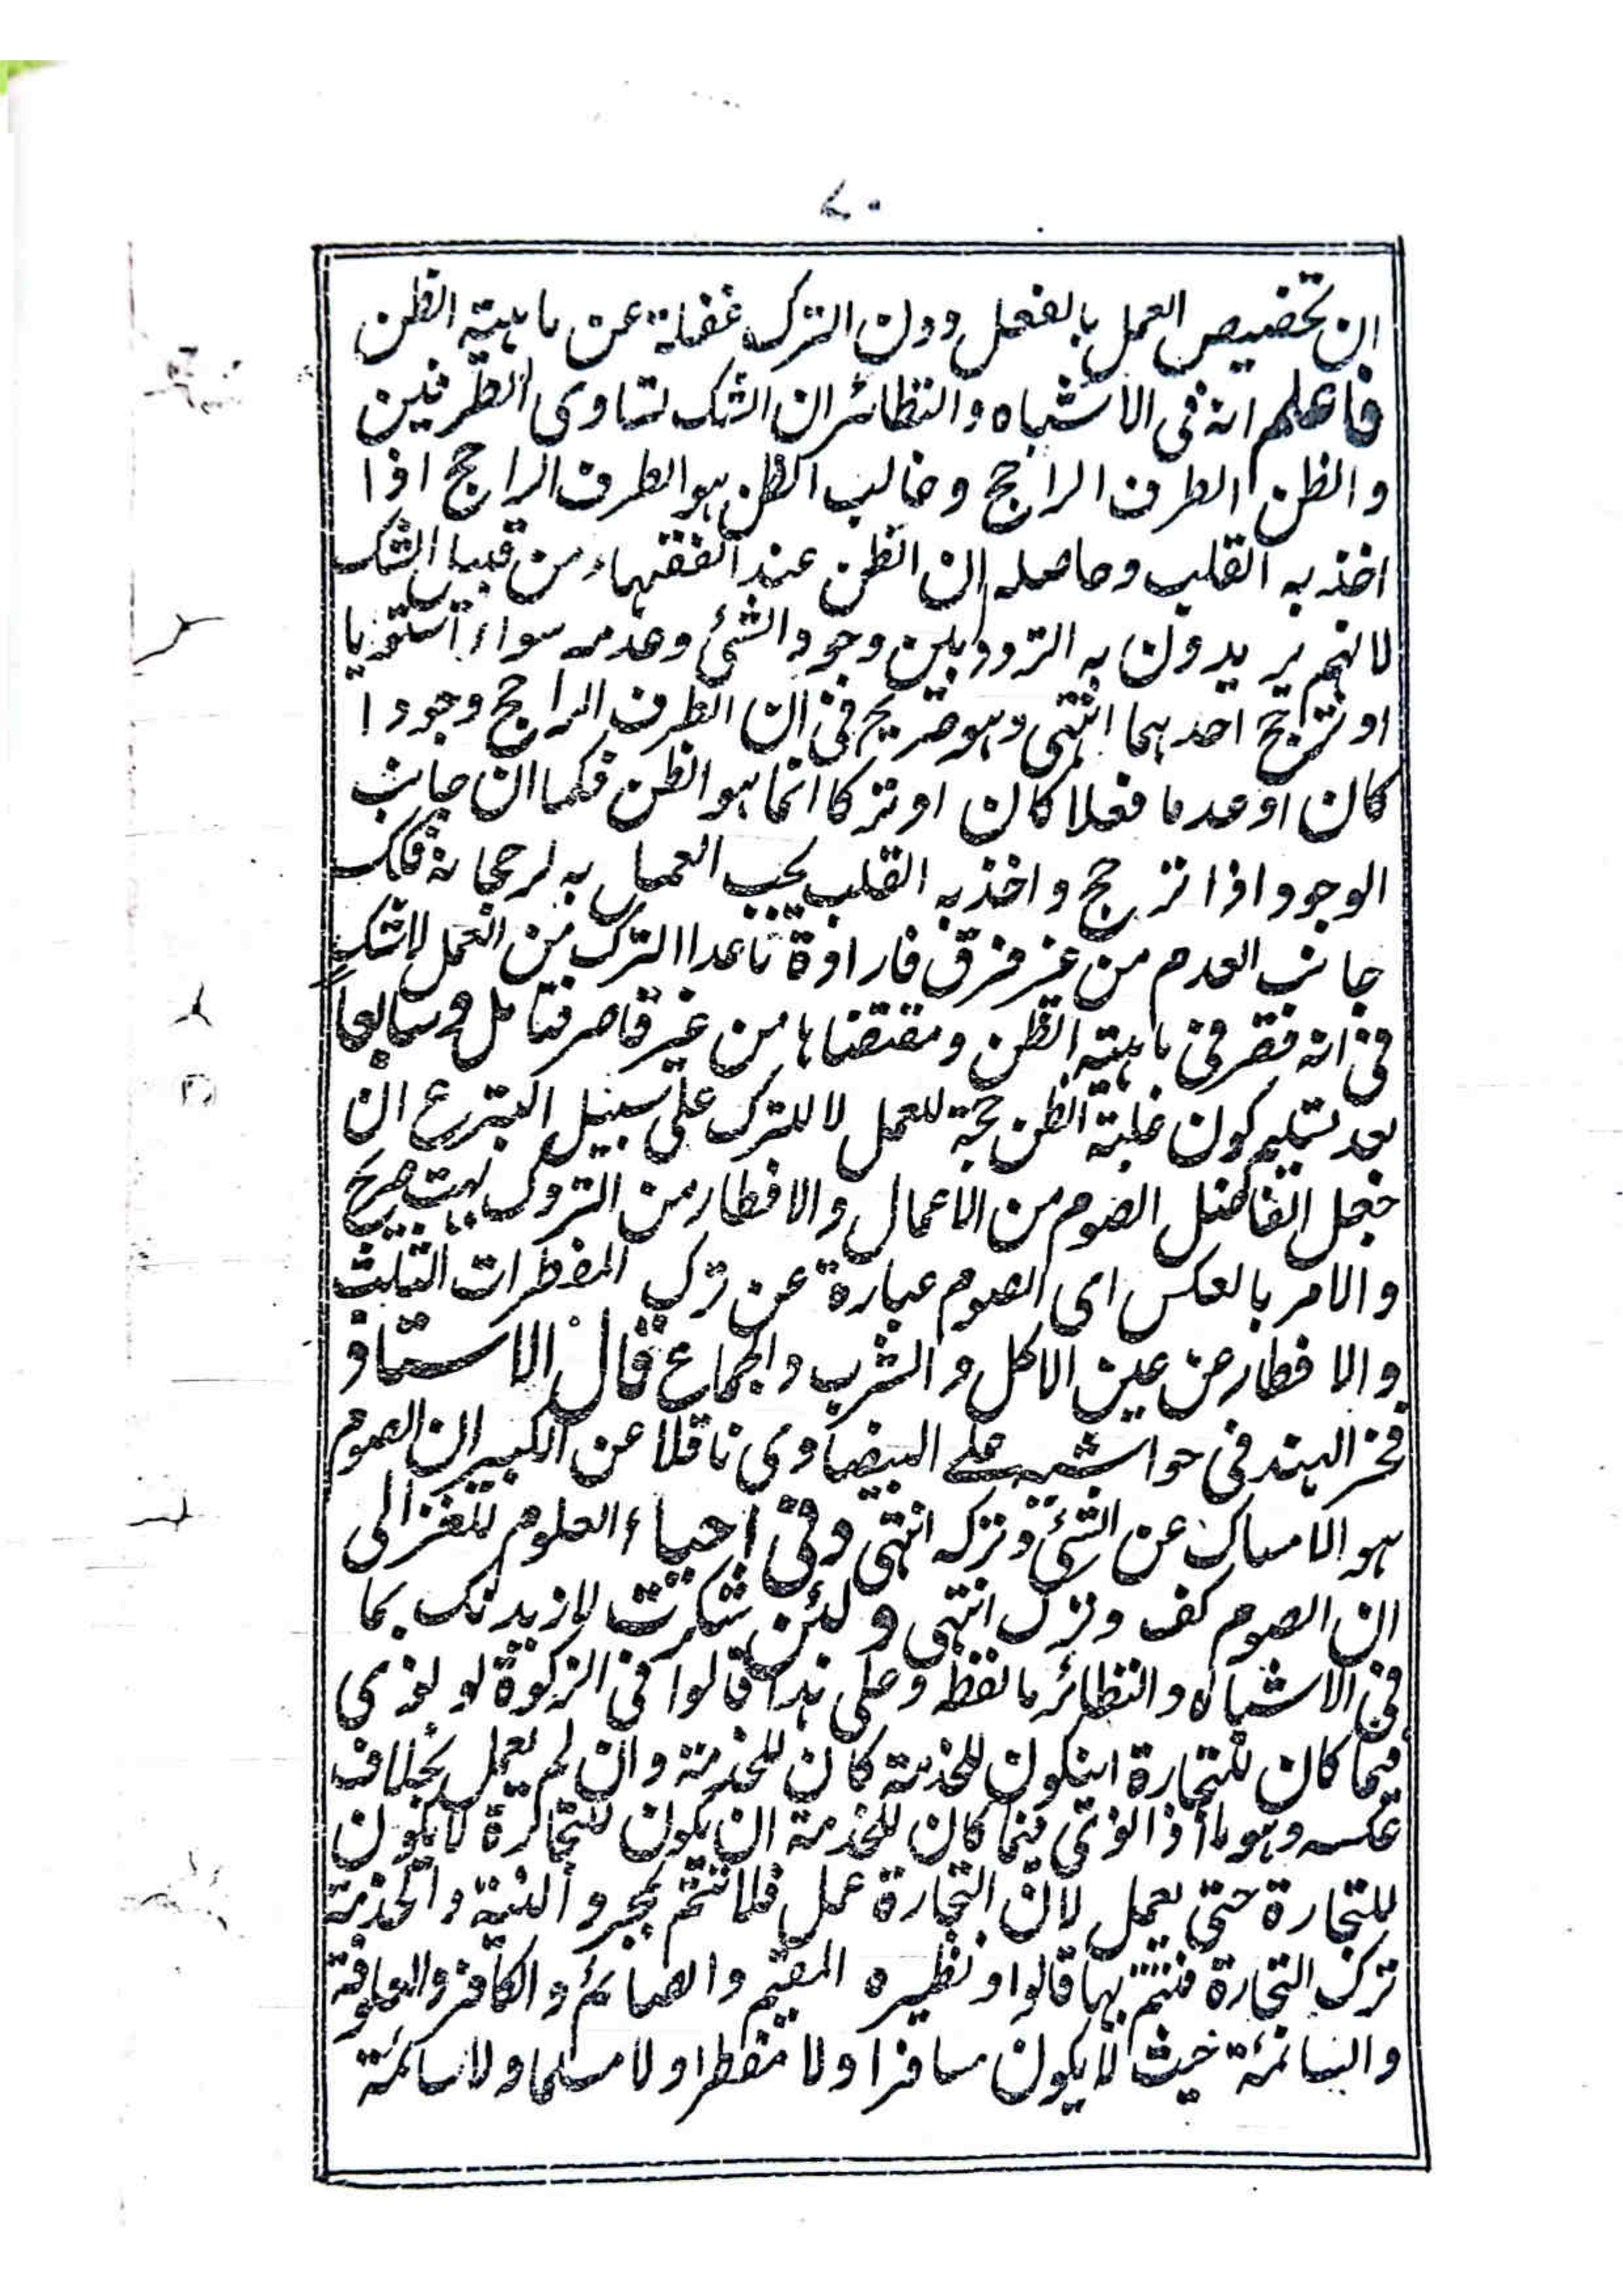 ٧٠
ان تخصيص العمل بالفعل دون الترك غفلة عن ماهية الظن
فاعلم انه فى الاشباه والنظائر ان الشك تساوى الطرفين
والظن الطرف الراجح وغالب الظن هو الطرف الراجح اذا
اخذ به القلب وحاصله ان الظن عند الفقهاء من قبيل الشك
لانهم يريدون به التردد بين وجود الشئ وعدمه سواء استويا
او ترجح احدهما انتهى وهو صريح فى ان الطرف الراجح وجودا
كان او عدما فعلا كان او تركا انما هو الظن فكما ان جانب
الوجود اذا ترجح واخذ به القلب يجب العمل به لرجحانه فكك
جانب العدم من غير فرق فارادة ما عدا الترك من العمل لاشك
فى انه قصر فى ماهية الظن ومقتضاها من غير قاصر فتامل وسابعا
بعد تسليم كون غلبة الظن حجة للعمل لا للترك على سبيل التبرع ان
جعل الفاضل الصوم من الاعمال والافطار من التروك بهت صريح
والامر بالعكس اى الصوم عبارة عن ترك المفطرات الثلث
والافطار عن عين الاكل والشرب والجماع قال الاستاذ
فخر الهند فى حواشيه على البيضاوى ناقلا عن الكبير ان الصوم
هو الامساك عن الشئ وتركه انتهى وفى احياء العلوم للغزالى
ان الصوم كف وترك انتهى ولئن شكرت لازيدنك بما
فى الاشباه والنظائر ما لفظه وعلى هذا قالوا فى الزكوة لو نوى
فيما كان للتجارة اينكون للخدمة كان للخدمة وان لم يعمل بخلاف
عكسه وهو ما اذا نوى فيما كان للخدمة ان يكون للتجارة لا يكون
للتجارة حتى يعمل لان التجارة عمل فلا تتم بمجرد النية والخدمة
ترك التجارة فتتم بها قالوا ونظيره المقيم والصائم والكافر والعلوفة
والسائمة حيث لا يكون مسافرا ولا مفطرا ولا مسلما ولا سائمة